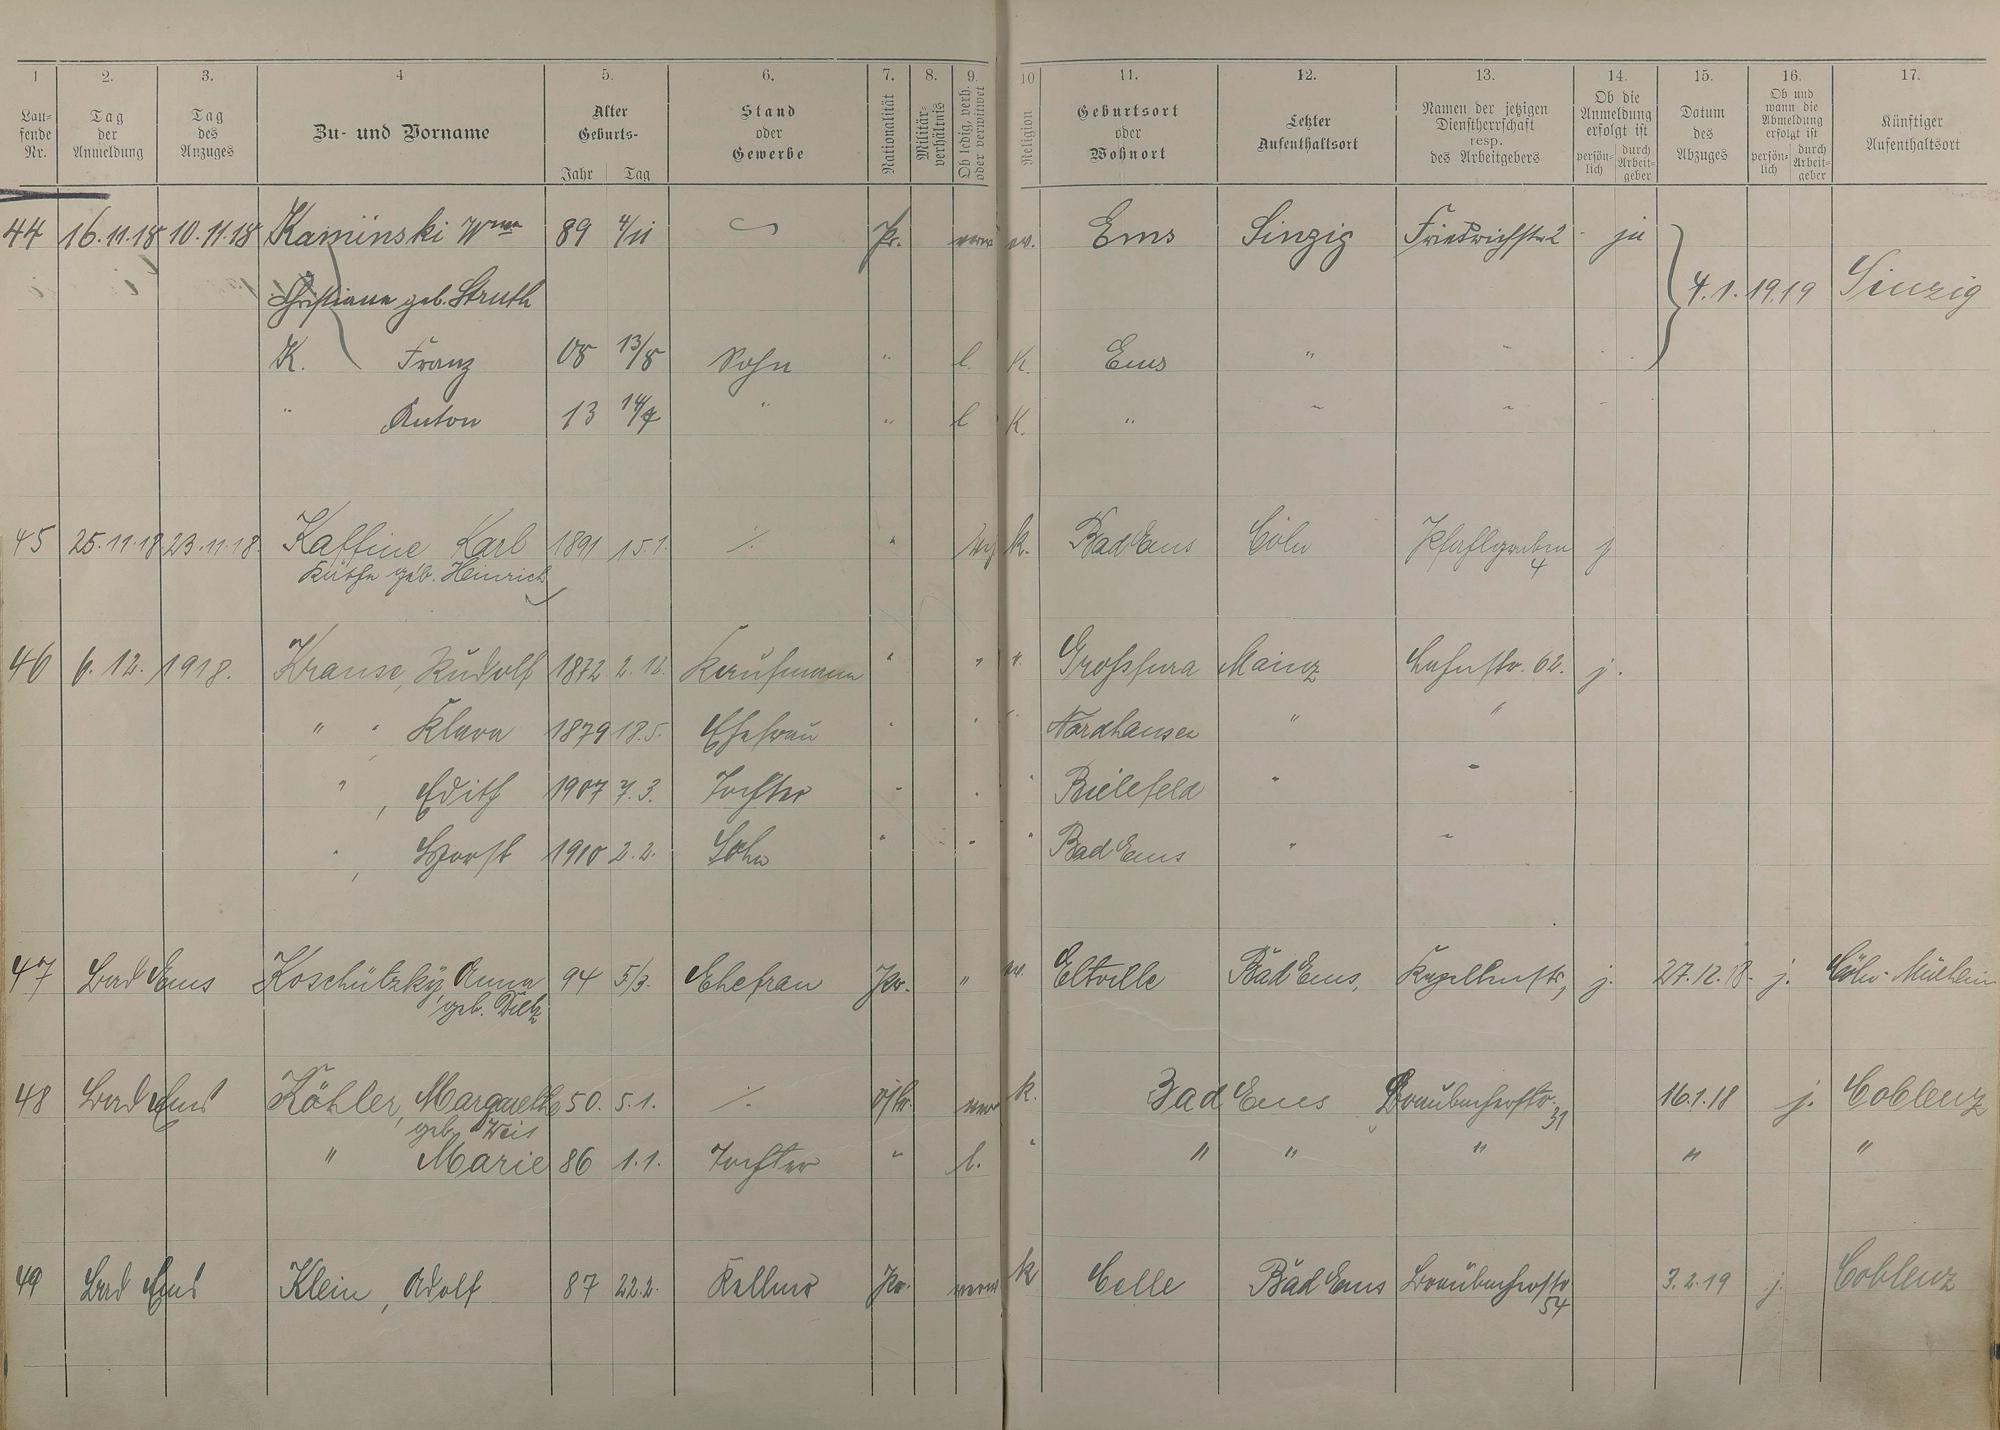 1 2. 3. 4 5. 6. 7. 8. 9. 10 11. 12. 13. 14. 15. 16. 17.
Lau-
fende
Nr.
Tag
der
Anmeldung
Tag
des
Anzuges
Zu- und Vorname
Alter
Geburts-
Jahr Tag
Stand
oder
Gewerbe
Nationalität
Militär-
verhältnis
Ob ledig, verh.
oder verwitwet
Religion
Geburtsort
oder
Wohnort
Letzter
Aufenthaltsort
Namen der jetzigen
Dienstherrschaft
resp.
des Arbeitgebers
Ob die
Anmeldung
erfolgt ist
persön-
lich
durch
Arbeit-
geber
Datum
des
Abzuges
Ob und
wann die
Abmeldung
erfolgt ist
persön-
lich
durch
Arbeit-
geber
Künftiger
Aufenthaltsort
44 16.11.18 10.11.18 Kaminski Wwe 89 4/11 Pr. ev. Ems Sinzig Friedrichstr 2 ja
Christiane geb. Struth 4.1.1919 Sinzig
K. Franz 08 13/8 Sohn " l. K. Ems " " "
" Anton 13 14/7 " " l K. " " " "
45 25.11.18 23.11.18. Kaffine Karl 1891 15.1. ./. " k. Bad Ems Cöln Pfahlgraben j
Käthe geb. Heinrich 4
46 6.12. 1918. Krause, Rudolf 1872 2.12. Kaufmann " " " Mainz Lahnstr. 62. j.
" " Klara 1879 18.5. Ehefrau " " " Nordhausen " "
" , Edith 1907 7.3. Tochter " " " Bielefeld " "
" , Horst 1910 2.2. Sohn " " " Bad Ems " "
47 Bad Ems Koschützky, Anna 94 5/3. Ehefrau Pr. " ev. Eltville Bad Ems, j. 27.12.18. j. Cöln-Mülheim
geb. Dietz
48 Bad Ems Köhler, Margarethe 50. 5.1. ./. k. Bad Ems Braubacherstr. 16.1.18 j. Coblenz
geb. Weis 31
" Marie 86 1.1. Tochter " l. " " " " " "
49 Bad Ems Klein, Adolf 87 22.2. Kellner Pr. verw k Celle Bad Ems Braubacherstr 3.2.19 j. Coblenz
54